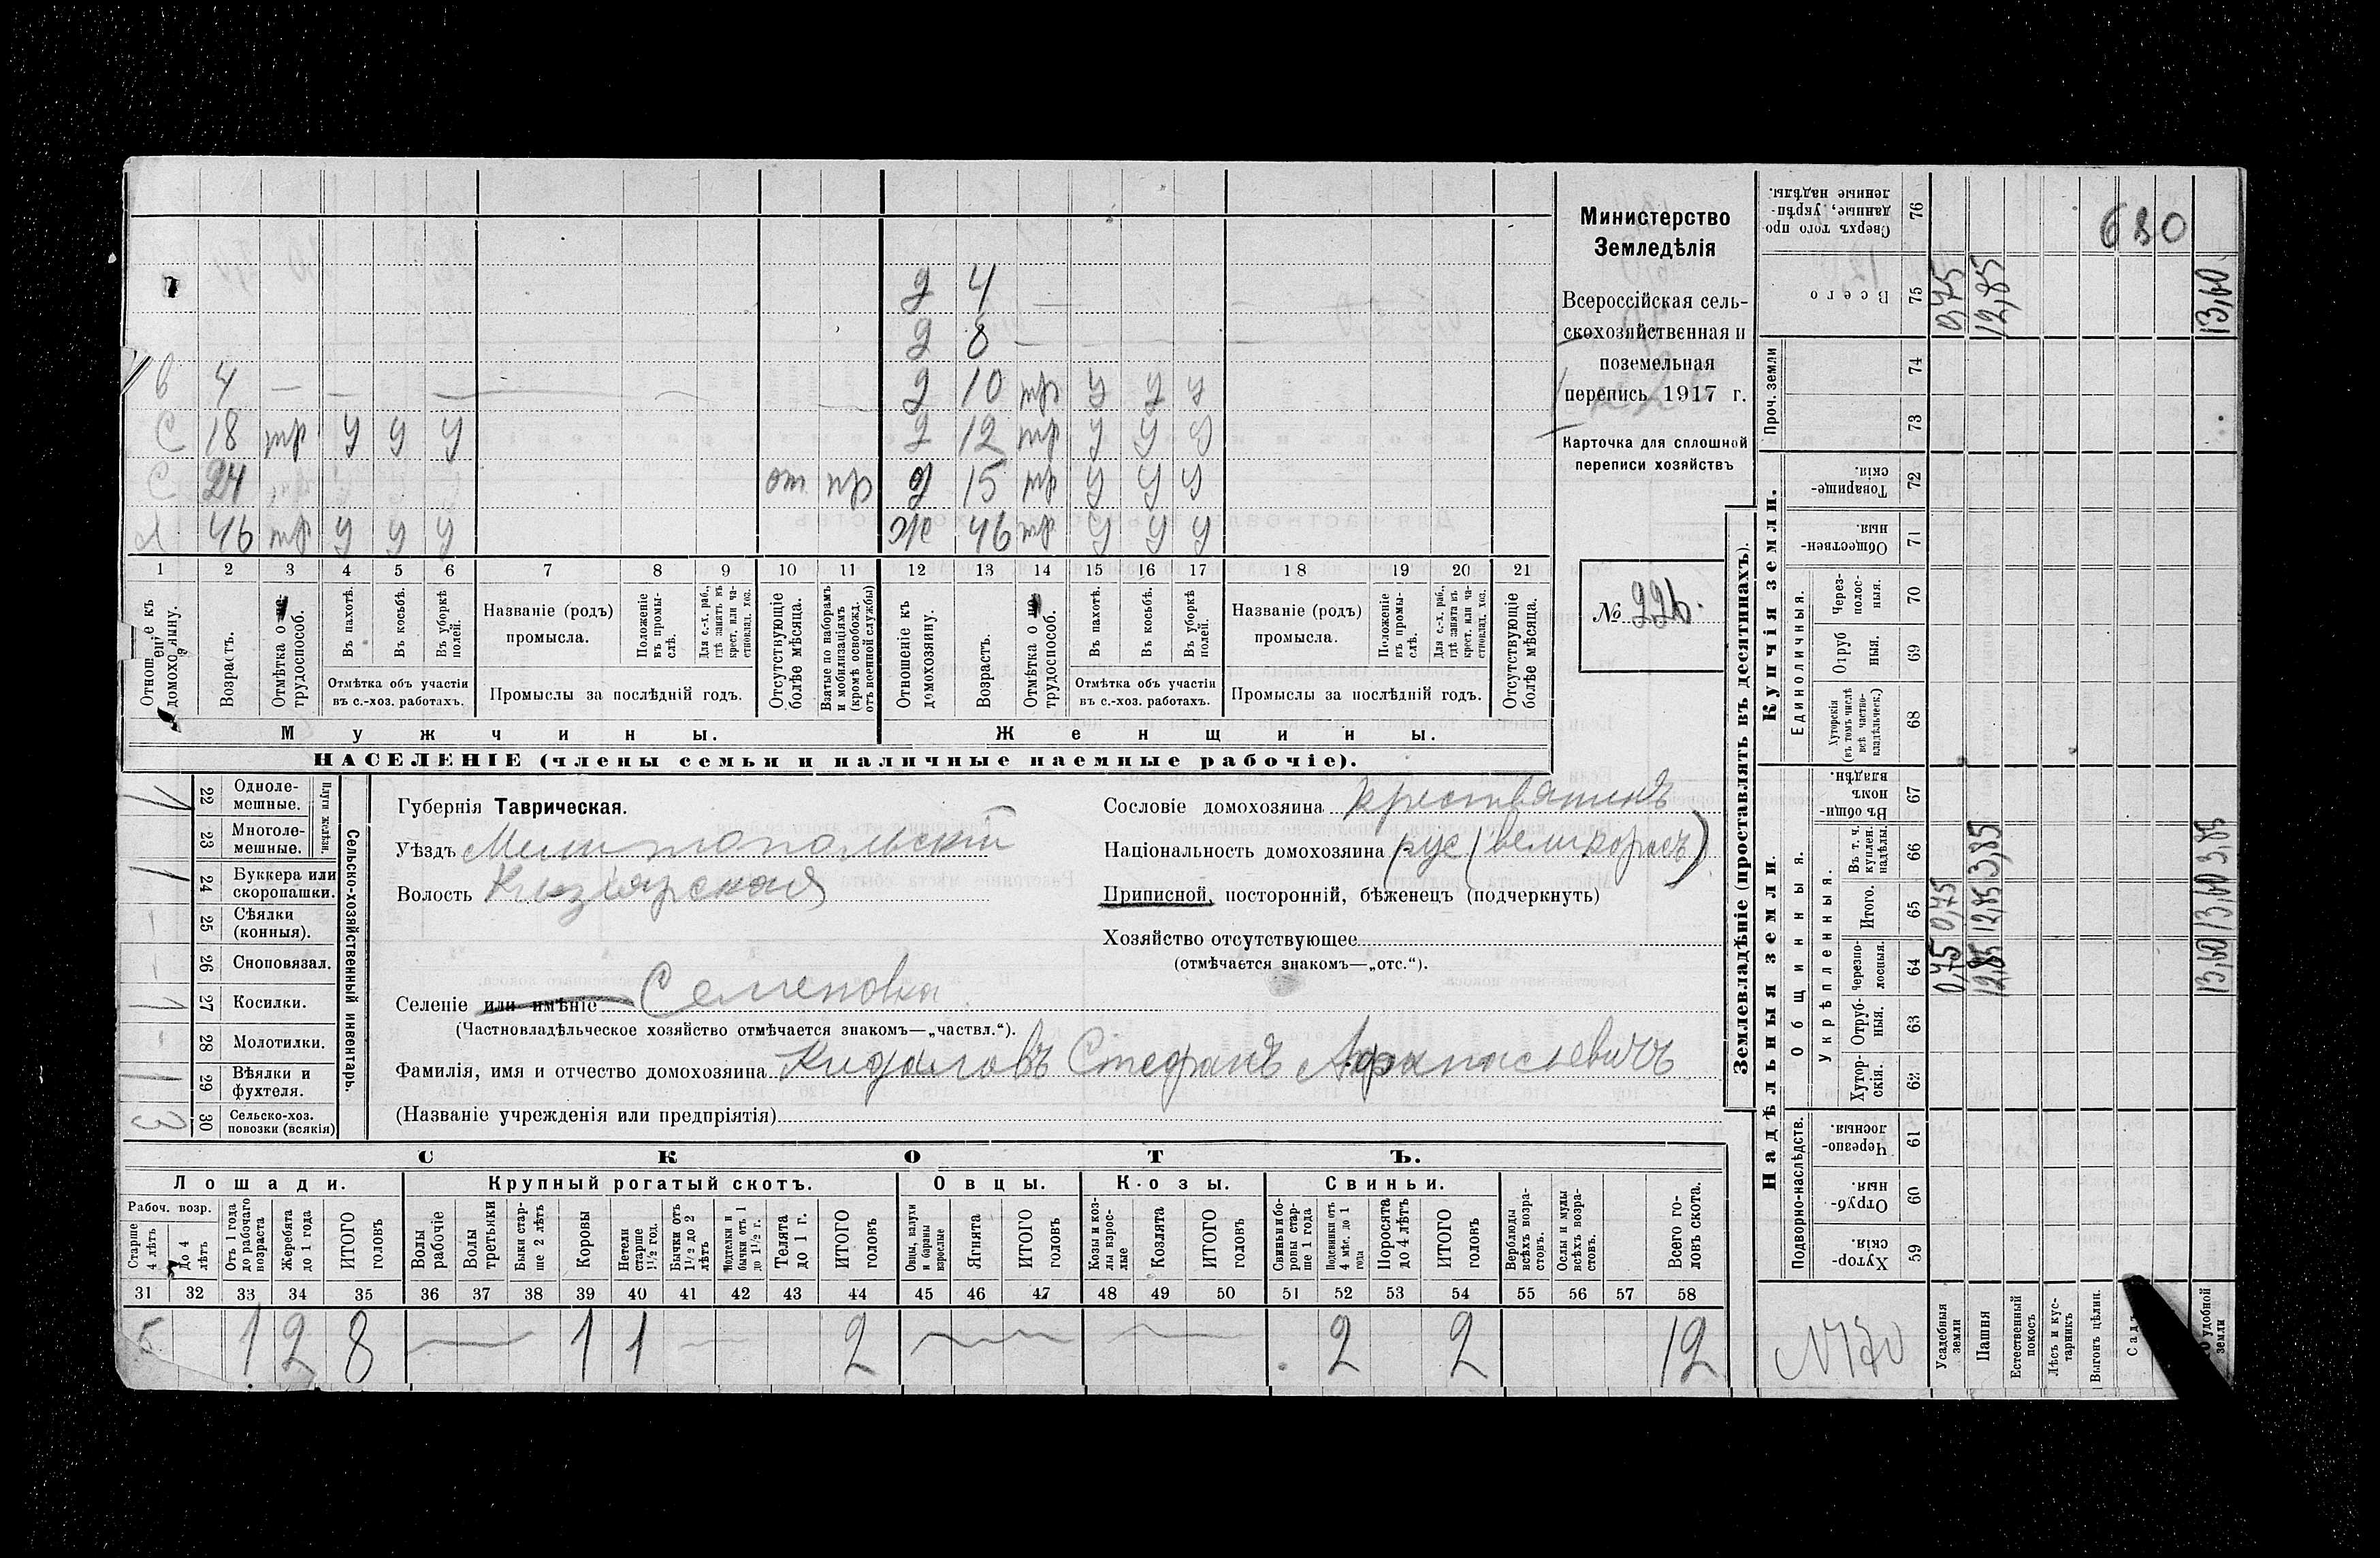 д 4
д 8
в 4 — — д 10 тр у у у
С 18 тр у у у д 12 тр у у у
С 24 от пр д 15 тр у у у
46 тр у у у Ж 46 тр у у у
1 2 3 4 5 6 7 8 9 10 11 12 13 14 15 16 17 18 19 20 21
Отношеніе къ домохозяину.
Возрастъ.
Отмѣтка о трудоспособ.
Въ пахотѣ.
Въ косьбѣ.
Въ уборкѣ полей.
Отмѣтка объ участіи въ с.-хоз. работахъ.
Названіе (родъ) промысла.
Положеніе въ промыслѣ.
Для с.-х. раб., гдѣ занятъ въ крест. или частновлад. хоз.
Промыслы за послѣдній годъ.
Отсутствующіе болѣе мѣсяца.
Взятые по наборамъ и мобилизаціямъ (кромѣ освобожд. отъ военной службы)
Отношеніе къ домохозяину.
Возрастъ.
Отмѣтка о трудоспособ.
Въ пахотѣ.
Въ косьбѣ.
Въ уборкѣ полей.
Отмѣтка объ участіи въ с.-хоз. работахъ.
Названіе (родъ) промысла.
Положеніе въ промыслѣ.
Для с.-х. раб., гдѣ занята въ крест. или частновлад. хоз.
Промыслы за послѣдній годъ.
Отсутствующіе болѣе мѣсяца.
Мужчины. Женщины.
НАСЕЛЕНІЕ (члены семьи и наличные наемные рабочіе).
Министерство
Земледѣлія
Всероссійская сель-
скохозяйственная и
поземельная
перепись 1917 г.
Карточка для сплошной
переписи хозяйствъ
№ 226.
Сельско-хозяйственный инвентарь.
Плуги желѣзн.
1 22 Одноле-мешные.
23 Многоле-мешные.
1 24 Буккера или скоропашки.
— 25 Сѣялки (конныя).
— 26 Сноповязал.
1 27 Косилки.
- 28 Молотилки.
1 29 Вѣялки и фухтеля.
3 30 Сельско-хоз. повозки (всякія)
Губернія Таврическая.
Уѣздъ Мелитопольскій
Волость Кизіярская
Селеніе или имѣніе Семеновка
(Частновладѣльческое хозяйство отмѣчается знакомъ—„частвл.“).
Фамилія, имя и отчество домохозяина Кидаловъ Стефанъ Афанасьевичъ
(Названіе учрежденія или предпріятія)
Сословіе домохозяина крестьянинъ
Національность домохозяина рус (великороссъ)
Приписной, посторонній, бѣженецъ (подчеркнуть)
Хозяйство отсутствующее
(отмѣчается знакомъ—„отс.“).
СКОТЪ.
Лошади. Крупный рогатый скотъ. Овцы. Козы. Свиньи.
Рабоч. возр.
Старше 4 лѣтъ
До 4 лѣтъ
Отъ 1 года до рабочаго возраста
Жеребята до 1 года
ИТОГО головъ
Волы рабочіе
Волы третьяки
Быки старше 2 лѣтъ
Коровы
Нетели старше 1½ год.
Бычки отъ 1½ до 2 лѣтъ
Подтелки и бычки отъ 1 до 1½ г.
Телята до 1 г.
ИТОГО головъ
Овцы, валухи и бараны взрослые
Ягнята
ИТОГО головъ
Козы и козлы взрослые
Козлята
ИТОГО головъ
Свиньи и боровы старше 1 года
Подсвинки отъ 4 мѣс. до 1 года
Поросята до 4 лѣтъ
ИТОГО головъ
Верблюды всѣхъ возрастовъ.
Ослы и мулы всѣхъ возрастовъ.
Всего головъ скота.
31 32 33 34 35 36 37 38 39 40 41 42 43 44 45 46 47 48 49 50 51 52 53 54 55 56 57 58
5 1 2 8 1 1 2 2 2 12
Землевладѣніе (проставлять въ десятинахъ).
Купчія земли.
Надѣльныя земли.
Сверхъ того проданные, укрѣпленные надѣлы. 76 680
Всего 75 0,75 12,85 13,60
Проч. земли 74
73
Товарищескія. 72
Общественныя 71
Единоличныя.
Через-полос-ныя. 70
Отрубныя. 69
Хуторскія (въ томъ числѣ всѣ частновладѣльческ.) 68
Общинныя.
Въ общинномъ владѣн. 67
Укрѣпленныя.
Въ т. ч. куплен. надѣлы. 66 3,85 3,85
Итого. 65 0,75 12,85 13,60
Черезпо-лосныя. 64 0,75 12,85 13,60
Отруб-ныя. 63
Хутор-скія. 62
Подворно-наслѣдств.
Черезпо-лосныя. 61
Отруб-ныя. 60
Хутор-скія. 59
№130
Усадебныя земли
Пашня
Естественный покосъ
Лѣсъ и кус-тарникъ
Выгонъ цѣлин.
удобной земли